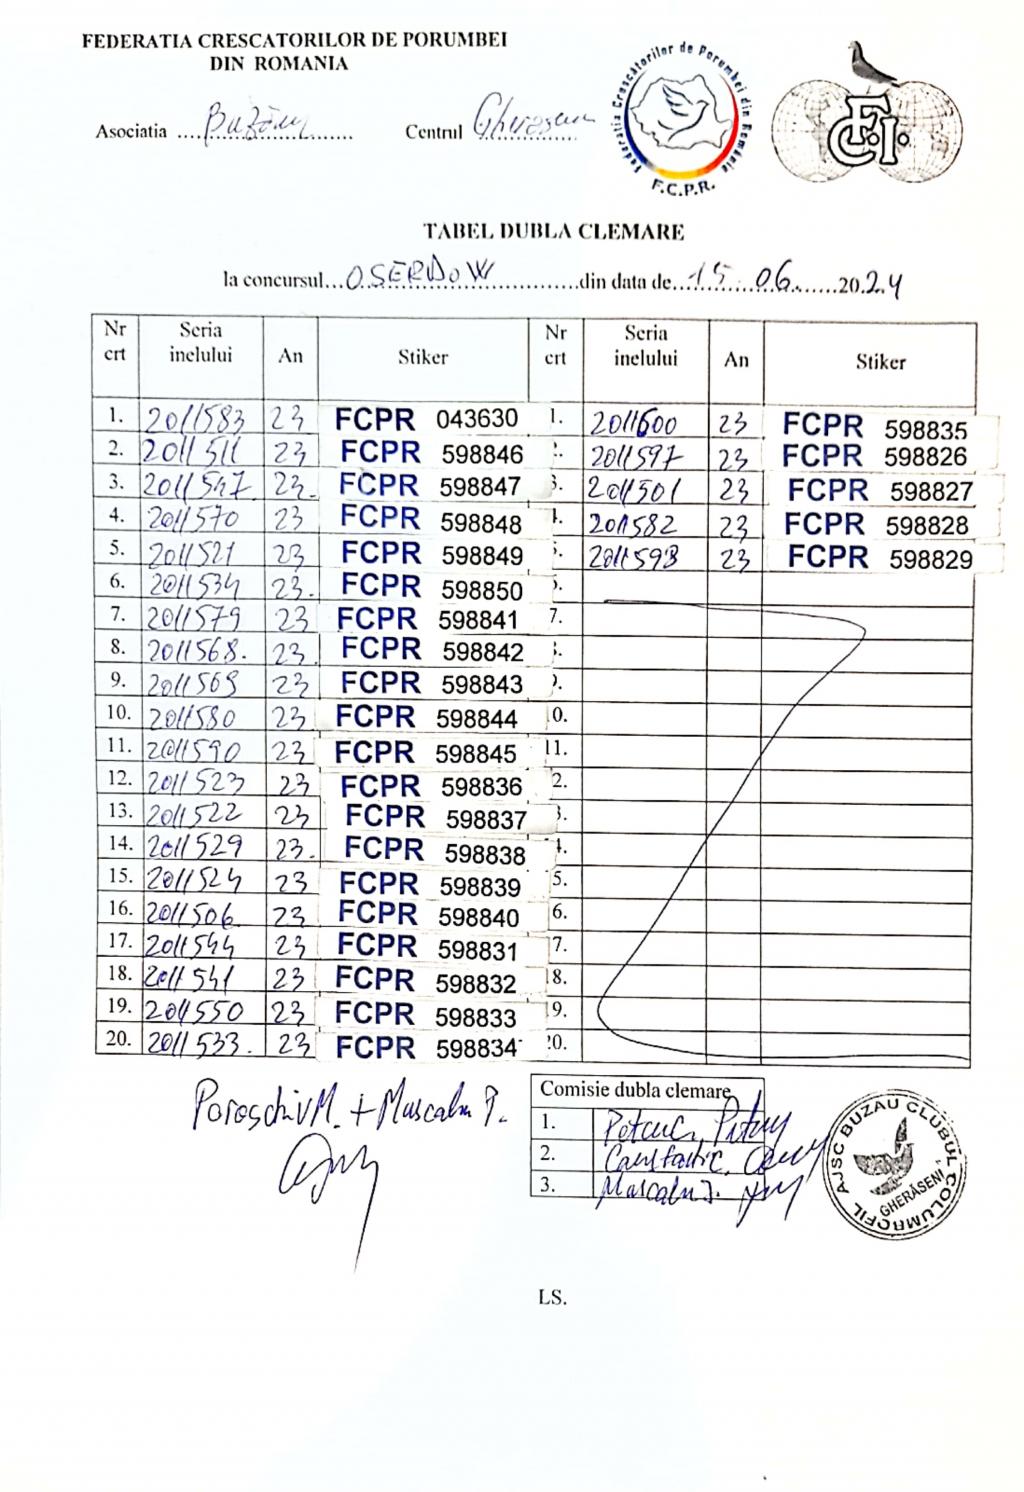 FEDERATIA CRESCATORILOR DE PORUMBEI
DIN ROMANIA
Asociatia Buzău Centrul Gheraseni
Federatia Crescătorilor de Porumbei din România
F.C.P.R.
F.C.I.
TABEL DUBLA CLEMARE
la concursul...OSERDOW...din data de...15.06...2024
Nr crt Seria inelului An Stiker Nr crt Seria inelului An Stiker
1. 2011583 23 FCPR 043630 1. 2011600 23 FCPR 598835
2. 2011511 23 FCPR 598846 2. 2011597 23 FCPR 598826
3. 2011547 23. FCPR 598847 3. 2011501 23 FCPR 598827
4. 2011570 23 FCPR 598848 4. 2011582 23 FCPR 598828
5. 2011521 23 FCPR 598849 5. 2011593 23 FCPR 598829
6. 2011534 23. FCPR 598850 6.
7. 2011579 23 FCPR 598841 7.
8. 2011568. 23. FCPR 598842 8.
9. 2011569 23 FCPR 598843 9.
10. 2011580 23 FCPR 598844 10.
11. 2011590 23 FCPR 598845 11.
12. 2011523 23 FCPR 598836 12.
13. 2011522 23 FCPR 598837 13.
14. 2011529 23. FCPR 598838 14.
15. 2011524 23 FCPR 598839 15.
16. 2011506 23 FCPR 598840 16.
17. 2011544 23 FCPR 598831 17.
18. 2011541 23 FCPR 598832 18.
19. 2011550 23 FCPR 598833 19.
20. 2011533. 23 FCPR 598834 20.
Poroschiv M. + Mascalu P.
Comisie dubla clemare
1.
2.
3. Mascalu
AJSC BUZAU CLUBUL COLUMBOFIL
GHERĂSENI
LS.